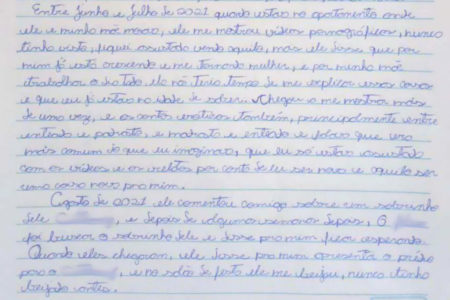 Entre Junho e Julho de 2021 quando estava no apartamento onde
ele e minha mãe mora, ele me mostrou vídeos pornográficos, nunca
tinha visto, fiquei assustada vendo aquilo, mas ele disse que por
mim já está crescendo e me tornando mulher, e por minha mãe
trabalhar o dia todo ela não teria tempo de me explicar essas coisas
e que eu já estava na idade de saber. Chegou a me mostrar mais
de uma vez, e os contos eróticos também, principalmente entre
enteada e padrasto, e e enteada e falava que era
mais comum do que eu imaginava, que eu só estava assustada
com os vídeos e os relatos por conta de eu ser nova e aquilo ser
uma coisa nova pra mim.
Agosto de 2021 ele comentou comigo sobre um sobrinho
dele, e depois de algumas semanas depois, O
foi buscar o sobrinho dele e disse pra mim ficar esperando.
Quando eles chegaram, ele disse pra mim apresentar o prédio
para o, e no salão de festa ele me beijou, nunca tinha
beijado antes.